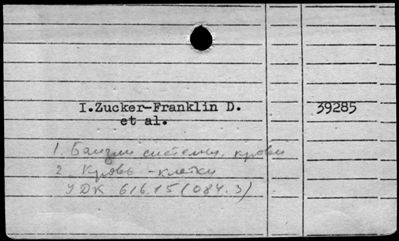 I.Zucker-Franklin D.
et al.
39285
1. системы крови
2. Кровь - клетки
УДК 616.15(084.3)